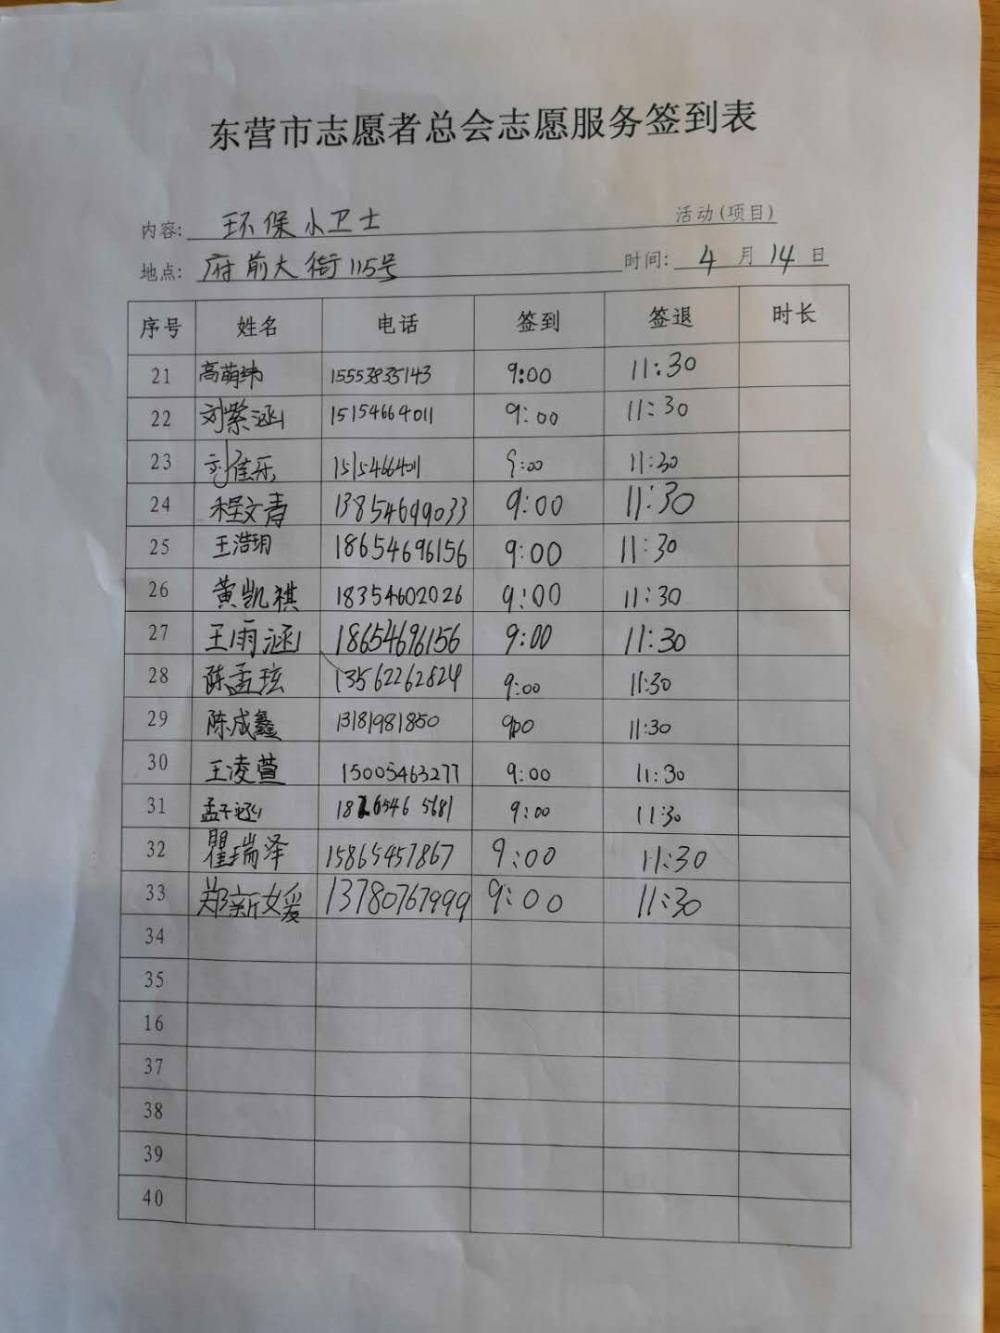 东营市志愿者总会志愿服务签到表
内容: 环保小卫士 活动(项目)
地点: 府前大街115号 时间: 4月14日
序号 姓名 电话 签到 签退 时长
21 高萌纬 15553835143 9:00 11:30
22 刘紫涵 15154664011 9:00 11:30
23 刘佳乐 1515466401 9:00 11:30
24 程文青 13854699033 9:00 11:30
25 王浩玥 18654696156 9:00 11:30
26 黄凯祺 18354602026 9:00 11:30
27 王雨涵 18654696156 9:00 11:30
28 陈孟玹 13562262824 9:00 11:30
29 陈成鑫 13181981850 9:00 11:30
30 王凌萱 15005463277 9:00 11:30
31 孟子涵 18265465681 9:00 11:30
32 瞿瑞泽 15865457867 9:00 11:30
33 郑新媛 13780767999 9:00 11:30
34
35
16
37
38
39
40